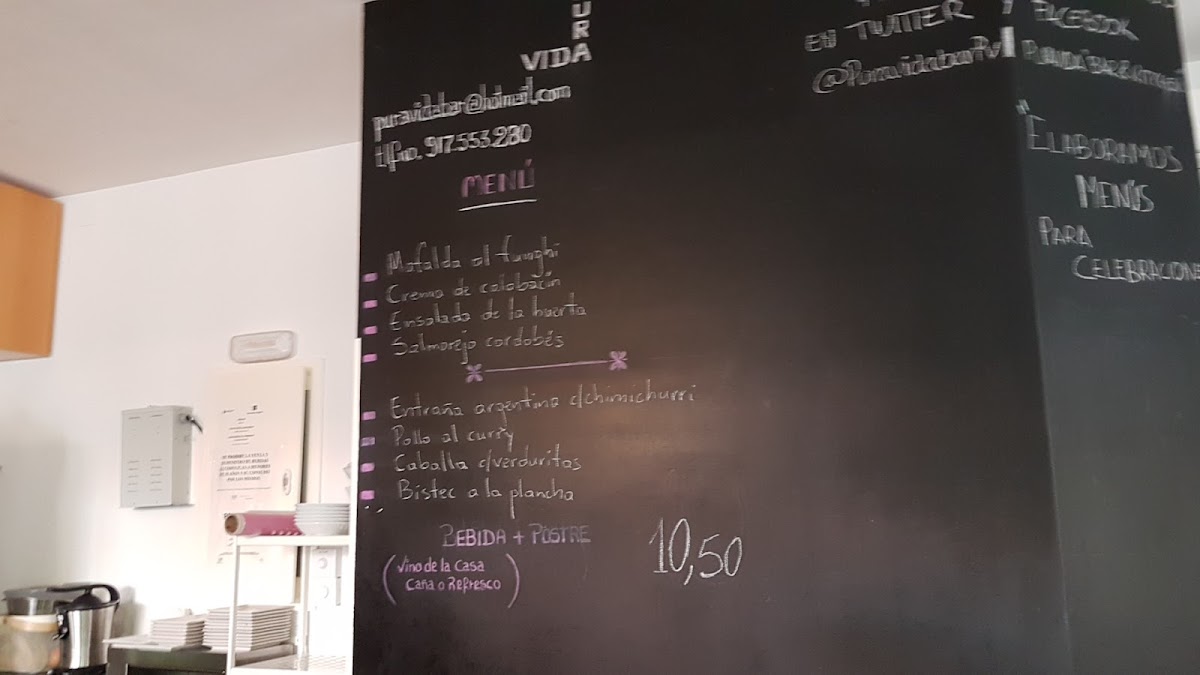 PURA
VIDA
puravidabar@hotmail.com
tlfno. 917.553.280
MENÚ
Mafalda al funghi
Crema de calabacín
Ensalada de la huerta
Salmorejo cordobés
Entraña argentina c/chimichurri
Pollo al curry
Caballa c/verduritas
Bistec a la plancha
BEBIDA + POSTRE
(Vino de la Casa
Caña o Refresco)
10,50
EN TWITTER Y FACEBOOK
"ELABORAMOS
MENÚS
PARA
CELEBRACIONE